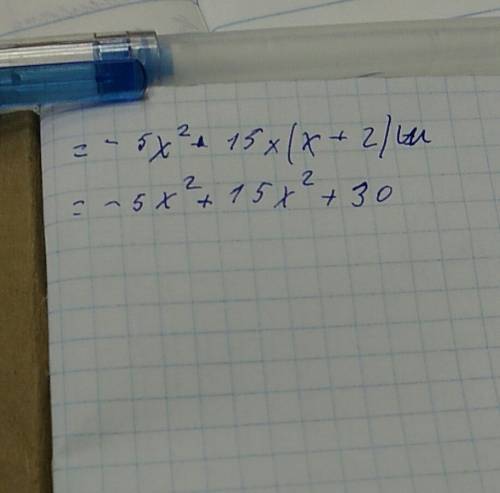 = - 5x² + 15x(x + 2)
= - 5x² + 15x² + 30